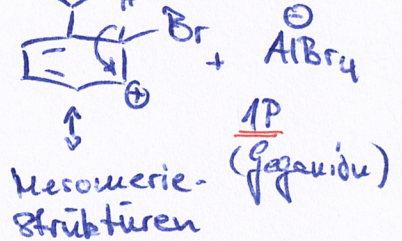 Br
⊕
+
⊖
AlBr4
1P
(Gegenion)
Mesomerie-
strukturen